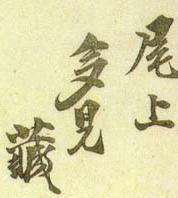 尾上
多見
藏